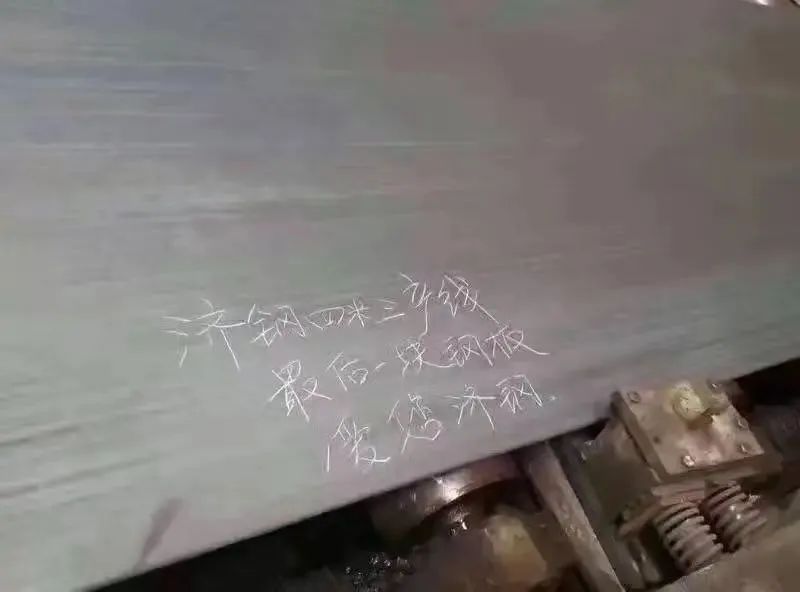 济钢四米三产线
最后一块钢板
济钢.